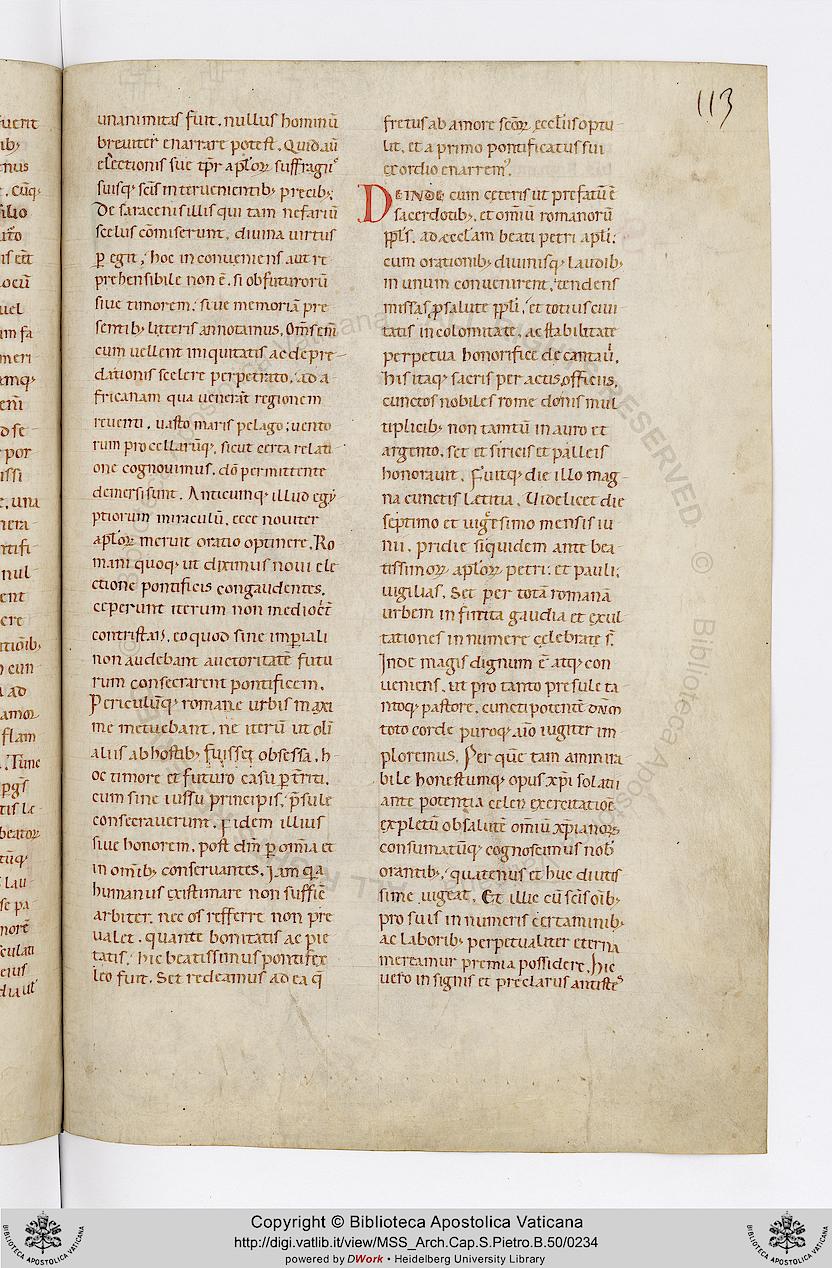 113
unanimitas fuit. nullus hominū
breviter enarrare potest. Quid aū
electionis sue tp̄r apl̄oꝝ suffragii
suisq; sc̄is intervenientib; precib;
De saracenis illis qui tam nefariū
scelus cōmiserunt, divina virtus
ꝑ egit, hoc inconveniens aut re
prehensibile non ē. si ob futurorū
sive timorem, sive memoriā pre
sentib; litteris annotamus. Om̄sem̄
cum vellent iniquitatis ac depre
dationis scelere perpetrato, ad a
fricanam qua venerāt regionem
reverti. vasto maris pelago; vento
rum procellarūq;, sicut certa relati
one cognovimus. dō permittente
demersi sunt. Anticumq; illud egy
ptiorum miraculū. ecce noviter
apl̄oꝝ meruit oratio optinere. Ro
mani quoq; ut diximus novi ele
ctione pontificis congaudentes.
ceperunt iterum non mediocr̄
contristari. eo quod sine imperiali
non audebant auctoritatē futu
rum consecrarent pontificem.
Periculūq; romane urbis maxi
me metuebant. ne iterū ut oli
aliis ab hostib; fuisset obsessa. h
oc timore et futuro casu ꝑtr̄riti.
cum sine iussu principis, p̄sule
consecraverunt. fidem illius
sive honorem. post dm̄ ꝑ om̄ia et
in om̄ib; conservantes. Iam q̄a
humanus existimare non suffic̄
arbiter. nec os refferre non pre
valet. quante bonitatis ac pie
tatis. hic beatissimus pontifex
leo fuit. Set redeamus ad ea q̄
fretus ab amore sc̄oꝝ eccl̄iis optu
lit. et a primo pontificatus sui
exordio enarrem;
DEINDE cum ceteris ut prefatū ē
sacerdotib;. et omiū romanorū
ppl̄s. ad eccl̄am beati petri apl̄i.
cum orationib; divinisq; laudib;
in unum convenirent. tendens
missas ꝓ salute ppl̄i, et totius civi
tatis incolomitate, ac stabilitate
perpetua honorifice decantav̄.
his itaq; sacris per actis officiis.
cunctos nobiles rome donis mul
tiplicib; non tamtū in auro et
argento. set et siricis et palleis
honoravit. Fuitq; die illo mag
na cunctis lætitia. Videlicet die
septimo et vigesimo mensis iu
nii. pridie siquidem ante bea
tissimoꝝ apl̄oꝝ petri. et pauli.
vigilias. Set per totā romanā
urbem infinita gaudia et exul
tationes innumere celebrate s̄.
Inde magis dignum ē atq; con
veniens. ut pro tanto presule ta
ntoq; pastore. cunctipotentē dn̄m
toto corde puroq; aīo iugiter im
ploremus. Per quē tam ammira
bile honestumq; opus xp̄i solatii
ante potentia celeri exercitatiōē
expletū ob salutē omiū xp̄ianoꝝ
consumatūq; cognoscimus nob̄
orantib;. quatenus et huc diutis
sime vigeat. Et illic cū sc̄is oīb;
pro suis innumeris certaminib;
ac laborib; perpetualiter eterna
mereamur premia possidere. hic
vero insignis et preclarus antistes
Copyright © Biblioteca Apostolica Vaticana
http://digi.vatlib.it/view/MSS_Arch.Cap.S.Pietro.B.50/0234
powered by DWork • Heidelberg University Library